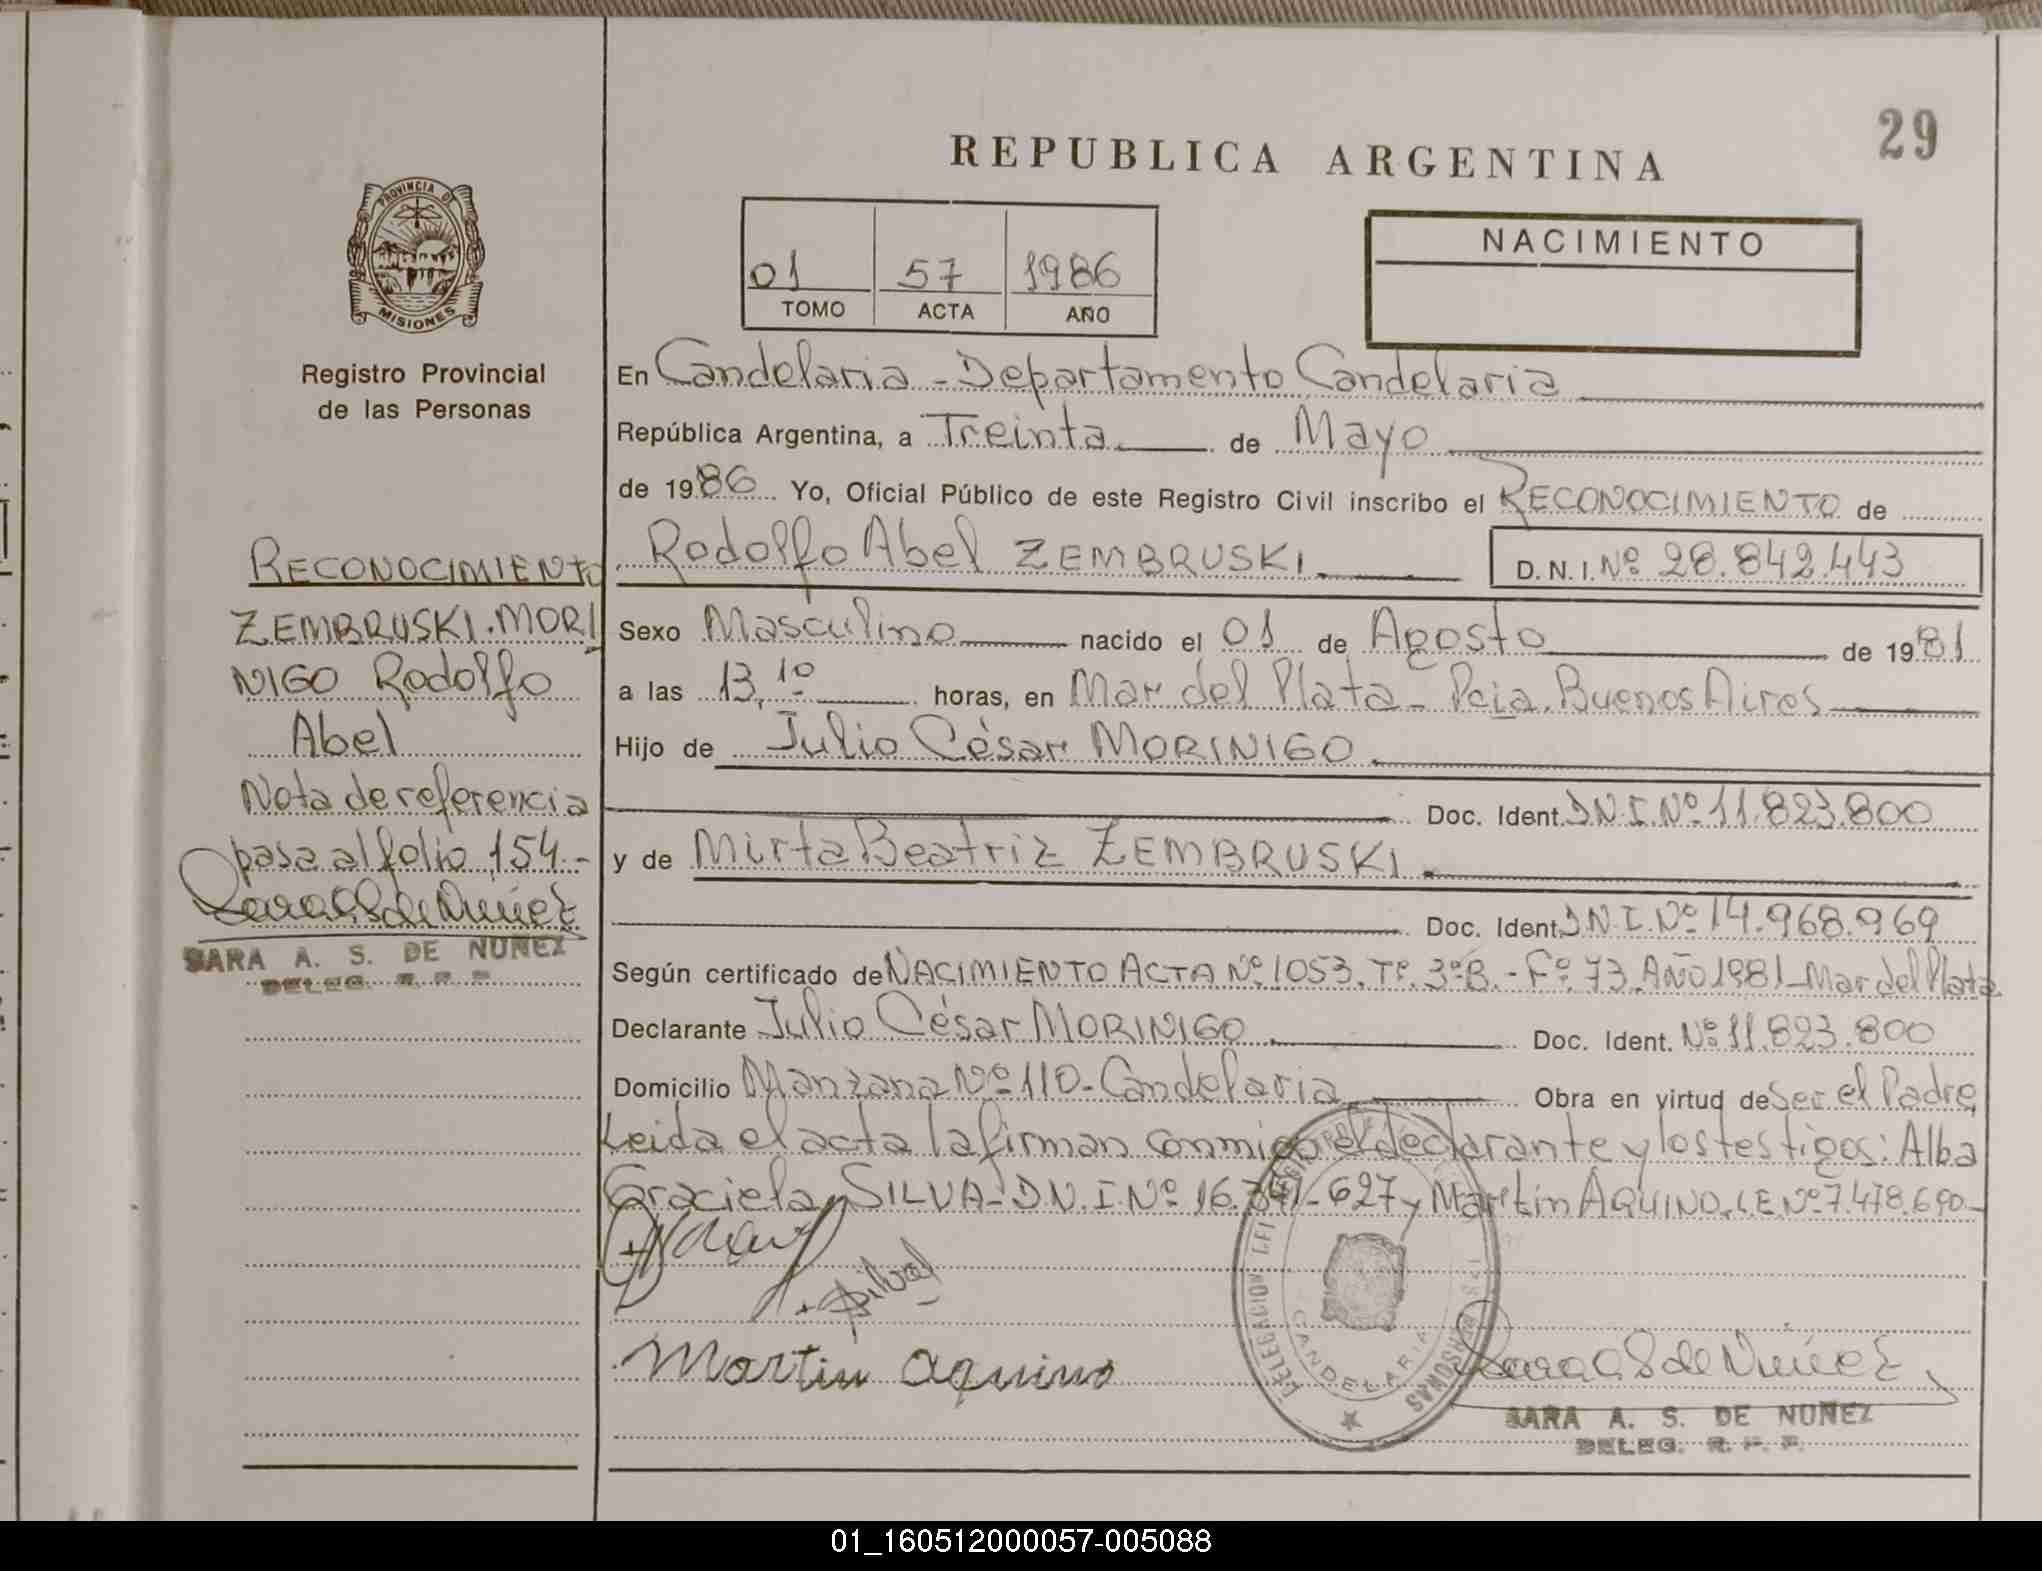 29
REPUBLICA ARGENTINA
PROVINCIA DE
MISIONES
Registro Provincial
de las Personas
01 57 1986
TOMO ACTA AÑO
NACIMIENTO
En Candelaria - Departamento Candelaria
República Argentina, a Treinta de Mayo
de 1986 Yo, Oficial Público de este Registro Civil inscribo el RECONOCIMIENTO de
Rodolfo Abel ZEMBRUSKI. D.N.I. Nº 28.842.443
Sexo Masculino nacido el 01 de Agosto de 1981
a las 13,10 horas, en Mar del Plata - Pcia. Buenos Aires
Hijo de Julio César MORINIGO
Doc. Ident. D.N.I. Nº 11.823.800
y de Mirta Beatriz ZEMBRUSKI
Doc. Ident. D.N.I. Nº 14.968.969
Según certificado de NACIMIENTO ACTA Nº 1053. Tº. 3º B. - Fº. 73. AÑO 1981 - Mar del Plata
Declarante Julio César MORINIGO Doc. Ident. Nº 11.823.800
Domicilio Manzana Nº 110 - Candelaria Obra en virtud de Ser el Padre
Leida el acta la firman conmigo el declarante y los testigos: Alba
Graciela SILVA - D.N.I. Nº 16.341-627 y Martín AQUINO. L.E. Nº 7.478.690 -
Silva
Martin Aquino
Sara A S de Nuñez
SARA A. S. DE NUÑEZ
DELEG. R. P. P.
DELEGACION DEL REGISTRO PERSONAS
CANDELARIA
RECONOCIMIENTO
ZEMBRUSKI. MORI
NIGO Rodolfo
Abel
Nota de referencia
pasa al folio 154.-
Sara A S de Nuñez
SARA A. S. DE NUÑEZ
DELEG. R. P. P.
01_160512000057-005088